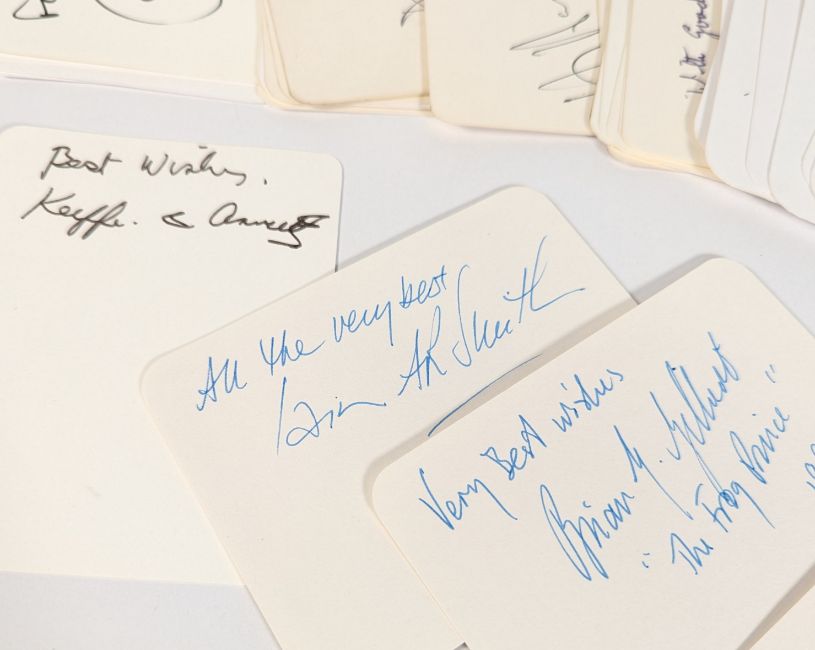 With Good
Best Wishes.
Keeffe. & Annette
All the very best
Iain AR Smith
Very Best wishes
Brian G. Gilbert
"The Frog Prince"